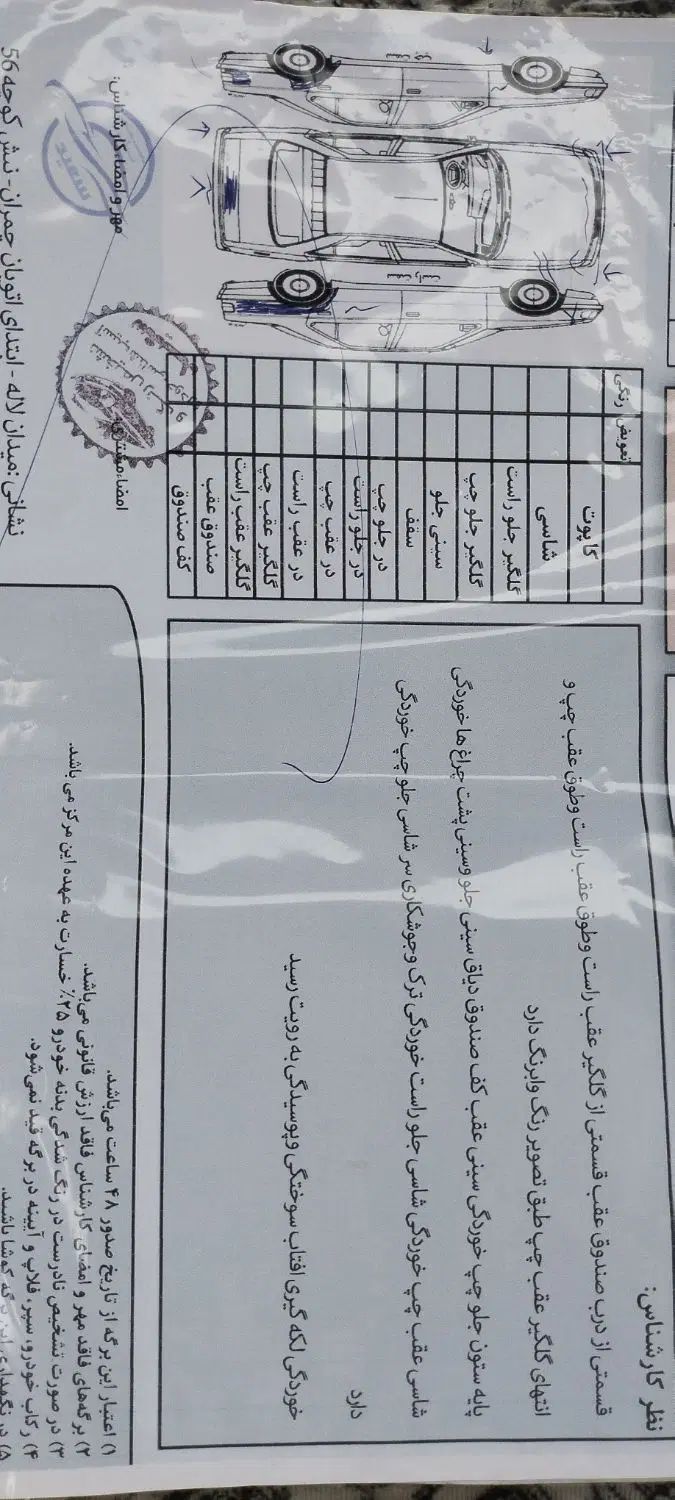 نظر کارشناس:
قسمتی از درب صندوق عقب قسمتی از گلگیر عقب راست وطوق عقب راست وطوق عقب چپ و
انتهای گلگیر عقب چپ طبق تصویر رنگ وابرنگ دارد
پایه ستون جلو چپ خوردگی سینی عقب کف صندوق دیاق سینی جلو وسینی پشت چراغ ها خوردگی
شاسی عقب چپ خوردگی شاسی جلو راست خوردگی ترک وجوشکاری سر شاسی جلو چپ خوردگی
دارد
خوردگی لکه گیری افتاب سوختگی وپوسیدگی به رویت رسید
رنگی
تعویض
کاپوت
شاسی
گلگیر جلو راست
گلگیر جلو چپ
سینی جلو
سقف
در جلو چپ
در جلو راست
در عقب چپ
در عقب راست
گلگیر عقب چپ
گلگیر عقب راست
صندوق عقب
کف صندوق
سمت راست
مهر و امضاء کارشناس:
سعید
امضاء مشتری:
۱) اعتبار این برگه از تاریخ صدور ۴۸ ساعت می‌باشد.
۲) برگه‌های فاقد مهر و امضای کارشناس فاقد ارزش قانونی می‌باشد.
۳) در صورت تشخیص نادرست در رنگ شدگی بدنه خودرو ۲۵٪ خسارت به عهده این مرکز می باشد.
۴) رکاب خودرو، سپر، فلاپ و آیینه در برگه قید نمی‌شود.
۵) در نگهداری این برگه کوشا باشید.
نشانی: میدان لاله - ابتدای اتوبان چمران - نبش کوچه 56